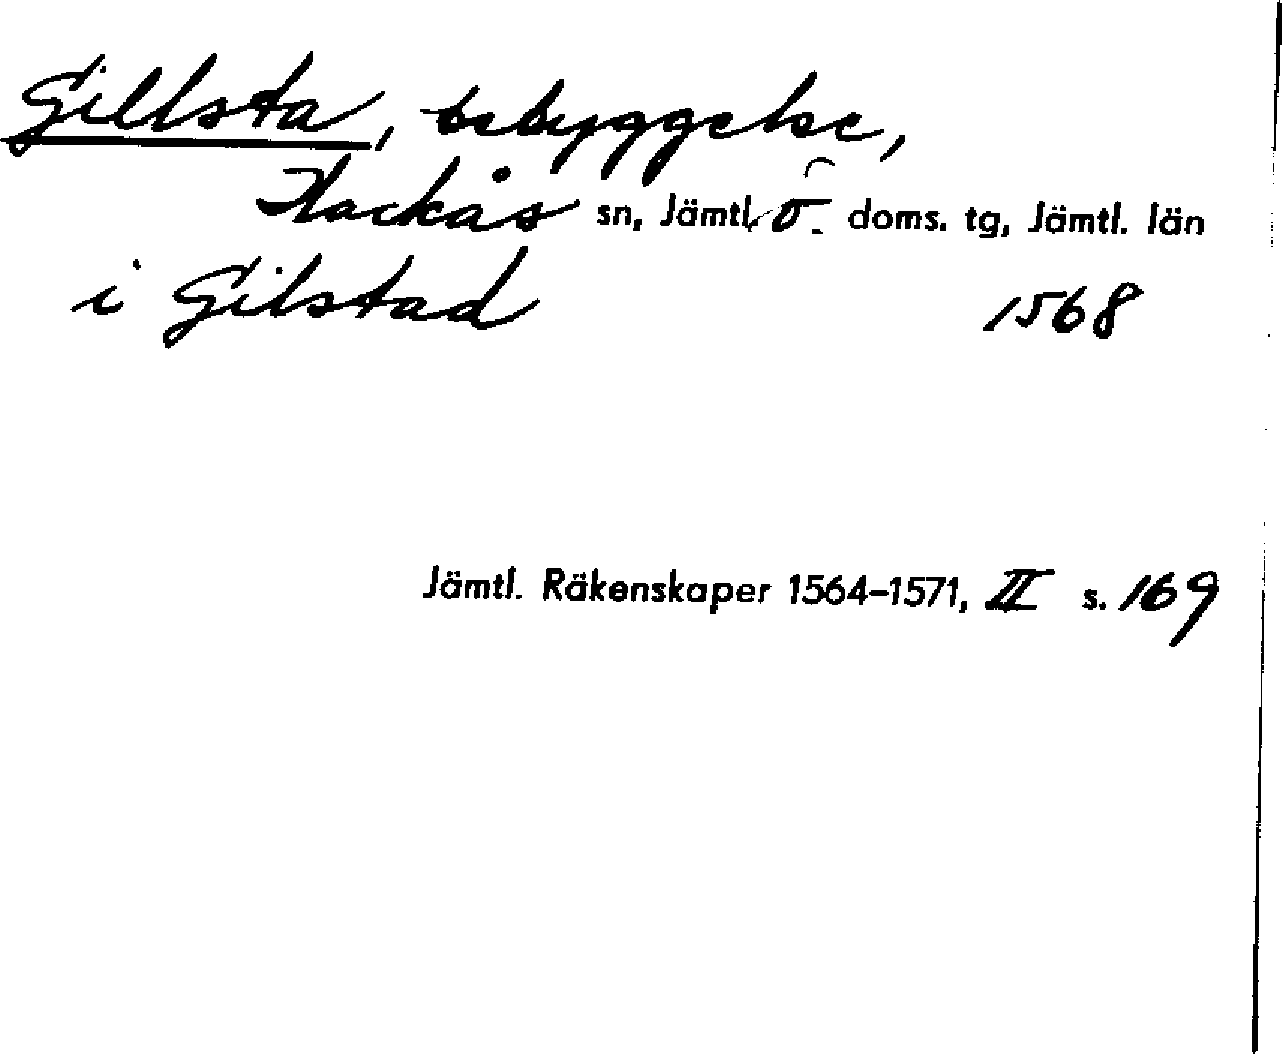 Gillsta, bebyggelse,
Hackås sn, Jämtl. Ö. doms. tg, Jämtl. län
i Gilstad 1568
Jämtl. Räkenskaper 1564-1571, II s. 169